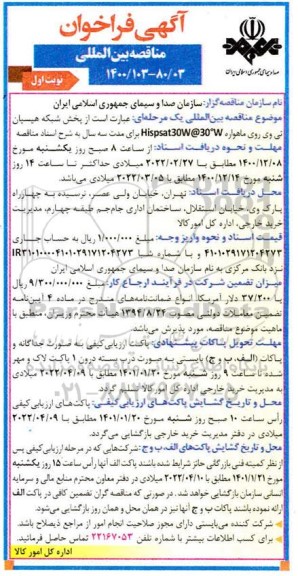 آگهی فراخوان
مناقصه بین المللی
۱۴۰۰/۱۰۳-۸۰/۰۳
نوبت اول
صدا و سیمای جمهوری اسلامی ایران
نام سازمان مناقصه‌گزار: سازمان صدا و سیمای جمهوری اسلامی ایران
موضوع مناقصه بین‌المللی یک مرحله‌ای: عبارت است از پخش شبکه هیسپان
تی وی روی ماهواره Hispsat30W@30°W برای مدت سه سال به شرح اسناد مناقصه
مهلت و نحوه دریافت اسناد: از ساعت ۸ صبح روز یکشنبه مورخ
۱۴۰۰/۱۲/۰۸ مطابق با ۲۰۲۲/۰۲/۲۷ میلادی حداکثر تا ساعت ۱۴ روز
شنبه مورخ ۱۴۰۰/۱۲/۱۴ مطابق با ۲۰۲۲/۰۳/۰۵ میلادی می‌باشد.
محل دریافت اسناد: تهران، خیابان ولی عصر، نرسیده به چهارراه
پارک وی، خیابان استقلال، ساختمان اداری جام‌جم طبقه چهارم، مدیریت
خرید خارجی، اداره کل امور کالا.
قیمت اسناد و نحوه واریز وجه: مبلغ ۱/۰۰۰/۰۰۰ ریال به حساب جاری
۴۱۰۱۰۲۹۱۷۱۲۰۴۲۷۳ و با شماره شبا
نزد بانک مرکزی به نام سازمان صدا و سیمای جمهوری اسلامی ایران
میزان تضمین شرکت در فرآیند ارجاع کار: مبلغ ۹/۳۰۰/۰۰۰/۰۰۰ ریال
یا ۳۷/۲۰۰ دلار آمریکا. انواع ضمانت‌نامه‌های مندرج در ماده ۴ آیین‌نامه
تضمین معاملات دولتی مصوب ۱۳۹۴/۸/۲۴ هیأت محترم وزیران، منطبق با
ماهیت موضوع مناقصه، مورد پذیرش می‌باشد.
مهلت تحویل پاکات پیشنهادی: پاکت ارزیابی کیفی به صورت جداگانه و
پاکات (الف، ب و ج)، بایستی به صورت دربسته درون ۱ پاکت لاک و مهر
شده تا ساعت ۹ روز شنبه مورخ ۱۴۰۱/۰۱/۲۰ مطابق با ۲۰۲۲/۰۴/۰۹ میلادی
به مدیریت خرید خارجی اداره کل امور کالا تحویل گردد.
محل و تاریخ گشایش پاکت‌های ارزیابی کیفی: پاکت‌های ارزیابی کیفی
رأس ساعت ۱۰ صبح روز شنبه مورخ ۱۴۰۱/۰۱/۲۰ مطابق با ۲۰۲۲/۰۴/۰۹
میلادی در دفتر مدیریت خرید خارجی بازگشایی می‌گردد.
محل و تاریخ گشایش پاکت‌های الف، ب و ج: شرکت‌هایی که در مرحله ارزیابی کیفی پس
از نظر کمیته فنی بازرگانی حائز شرایط شده باشند پاکت الف آنها رأس ساعت ۱۵ روز یکشنبه
مورخ ۱۴۰۱/۱/۲۱ مطابق با ۲۰۲۲/۰۴/۱۰ میلادی در دفتر معاون محترم منابع مالی و سرمایه
انسانی سازمان بازگشایی خواهد شد. در صورتی که مناقصه گران تضمین کافی در پاکت الف
ارائه نموده باشند پاکات ب و ج آنها نیز در همان محل و همان روز بازگشایی می‌شود.
شرکت کننده می‌بایستی دارای مجوز صلاحیت انجام امور از مراجع ذیصلاح باشد.
برای کسب اطلاعات بیشتر با شماره تلفن ۲۲۱۶۷۰۵۳ تماس حاصل فرمائید.
اداره کل امور کالا